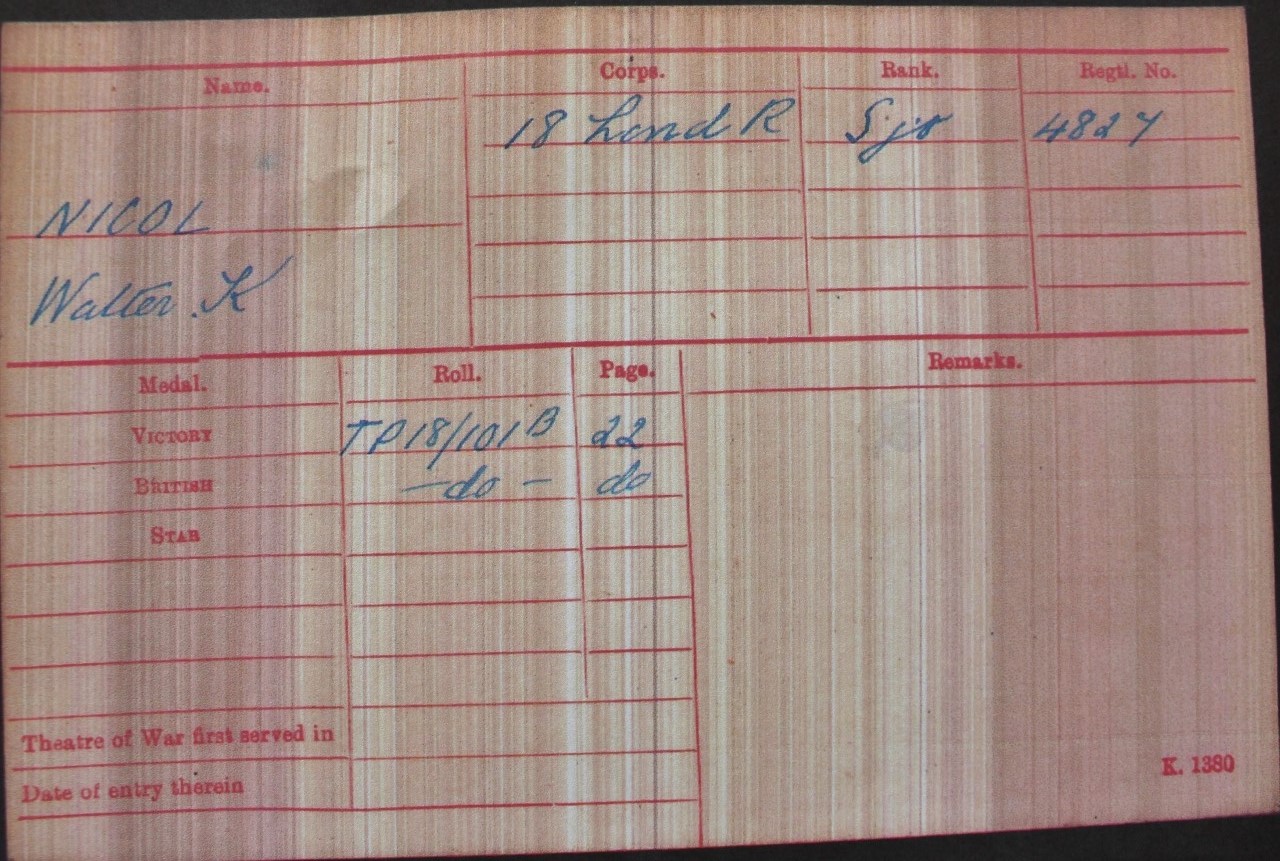 Name. Corps. Rank. Regtl. No.
18 Lond R Sjt 4827
NICOL
Walter. K
Medal. Roll. Page. Remarks.
VICTORY TP18/101B 22
BRITISH —do— do
STAR
Theatre of War first served in
Date of entry therein
K. 1380